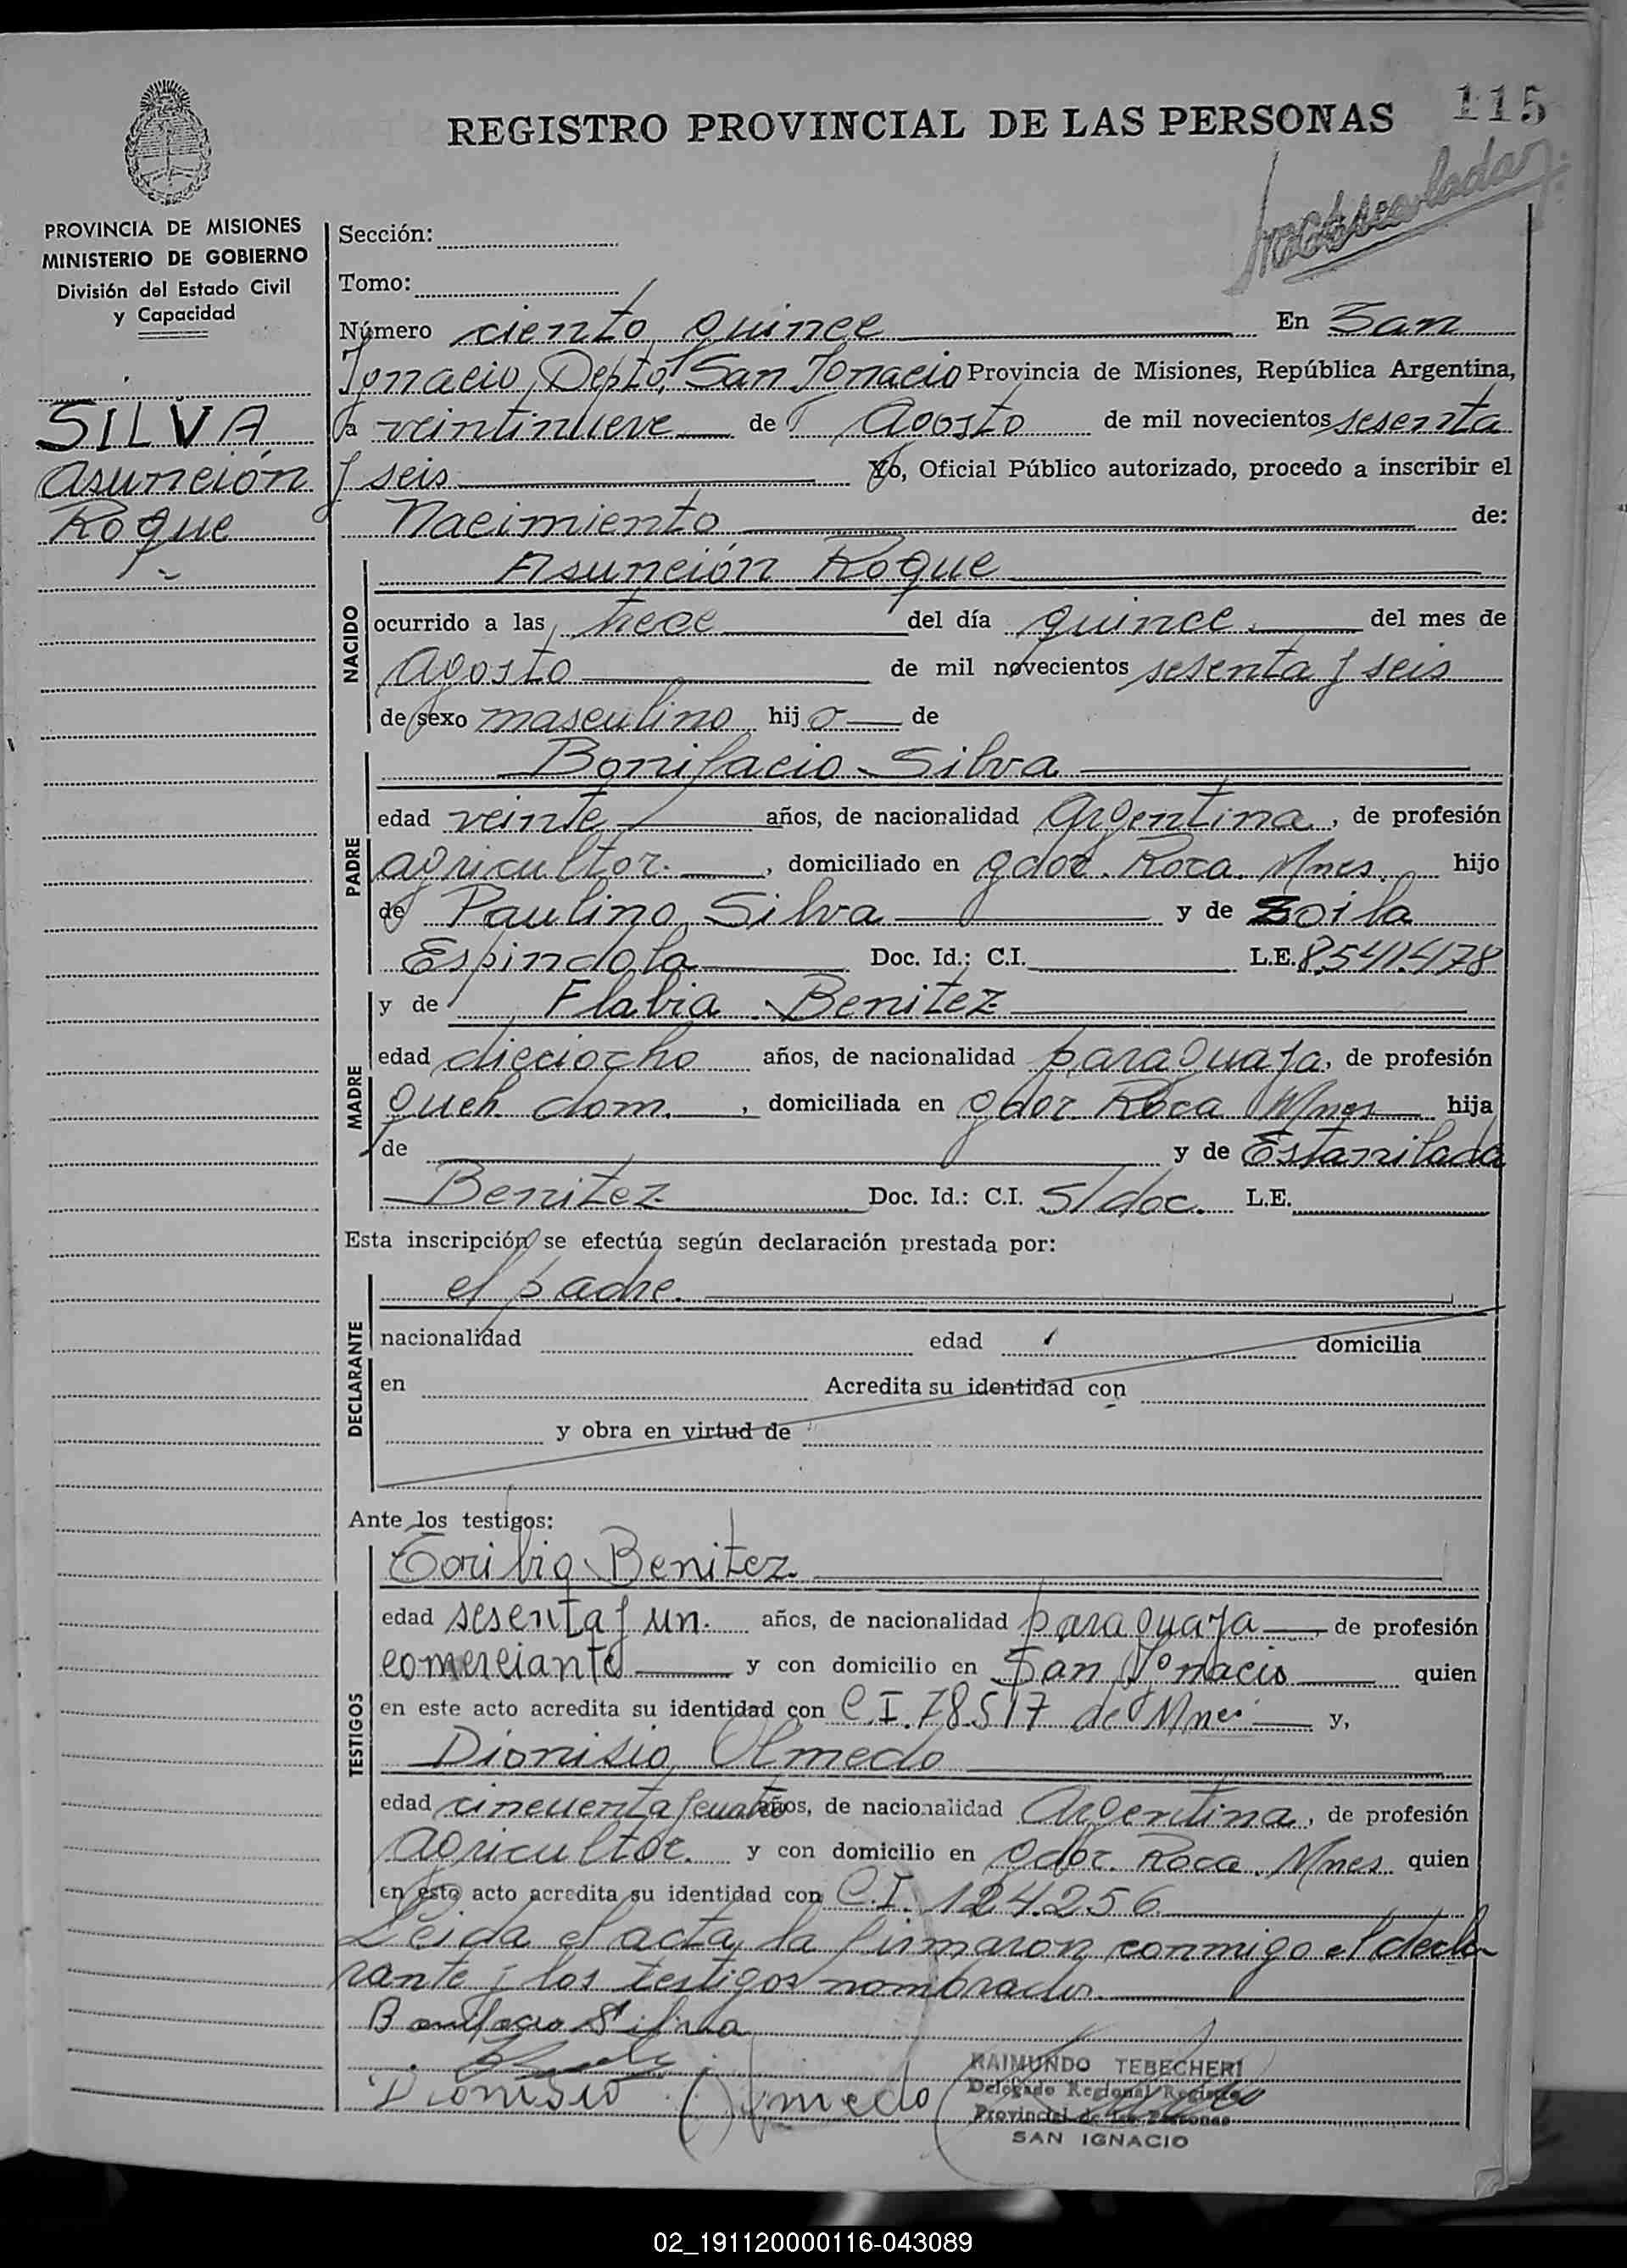 115
REGISTRO PROVINCIAL DE LAS PERSONAS
PROVINCIA DE MISIONES
MINISTERIO DE GOBIERNO
División del Estado Civil
y Capacidad
SILVA
Asunción
Roque
Sección:
Tomo:
Número ciento quince En San
Ignacio, Depto. San Ignacio Provincia de Misiones, República Argentina,
a veintinueve de Agosto de mil novecientos sesenta
y seis Yo, Oficial Público autorizado, procedo a inscribir el
Nacimiento de:
NACIDO
Asunción Roque
ocurrido a las trece del día quince del mes de
Agosto de mil novecientos sesenta y seis
de sexo masculino hijo de
PADRE
Bonifacio Silva
edad veinte años, de nacionalidad Argentina, de profesión
agricultor. , domiciliado en gdor. Roca. Mnes. hijo
de Paulino Silva y de Zoila
Espindola Doc. Id.: C.I. L.E. 8.541.478
MADRE
y de Flabia Benitez
edad dieciocho años, de nacionalidad paraguaya, de profesión
queh. dom. , domiciliada en gdor. Roca Mnes hija
de y de Estanilada
Benitez Doc. Id.: C.I. S/doc. L.E.
Esta inscripción se efectúa según declaración prestada por:
DECLARANTE
el padre.
nacionalidad edad domicilia
en Acredita su identidad con
y obra en virtud de
Ante los testigos:
TESTIGOS
Toribio Benitez.
edad sesenta y un. años, de nacionalidad paraguaya, de profesión
comerciante y con domicilio en San Ignacio quien
en este acto acredita su identidad con C.I. 78.517 de Mnes y,
Dionisio Olmedo
edad cincuenta y cuatro años, de nacionalidad Argentina, de profesión
agricultor. y con domicilio en gdor. Roca. Mnes quien
en este acto acredita su identidad con C.I. 124.256
Leida el acta, la firmaron conmigo el decla
rante y los testigos nombrados.
Bonifacio Silva
Dionisio Olmedo
RAIMUNDO TEBECHERI
Delegado Regional Registro
Provincial de las Personas
SAN IGNACIO
02_191120000116-043089